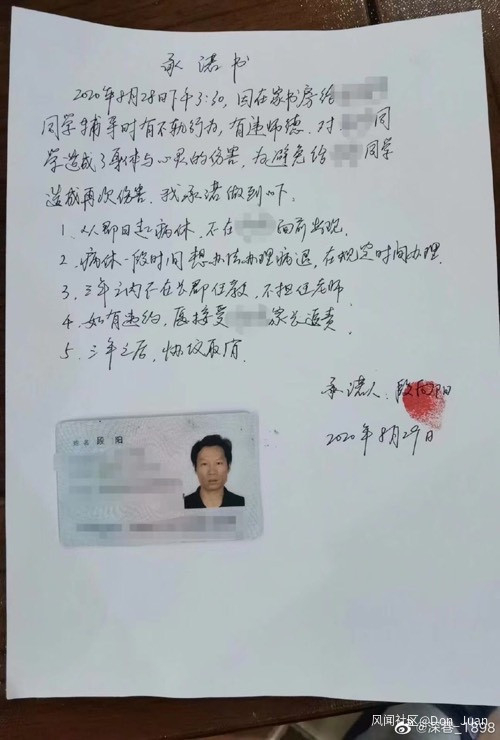 承诺书
2020年8月28日下午3:30,因在家书房给
同学辅导时有不轨行为,有违师德.对 同
学造成了身体与心灵的伤害,为避免给 同学
造成再次伤害.我承诺做到以下:
1、从即日起病休,不在 面前出现.
2、病休一段时间想办法办理病退,在规定时间办理.
3、三年之内不在长郡任教,不担任老师
4、如有违约,愿接受 家长追责.
5、三年之后,协议取消
承诺人:段向阳
2020年8月29日
姓名 段 阳
风闻社区@Don_Juan
@深巷_1898